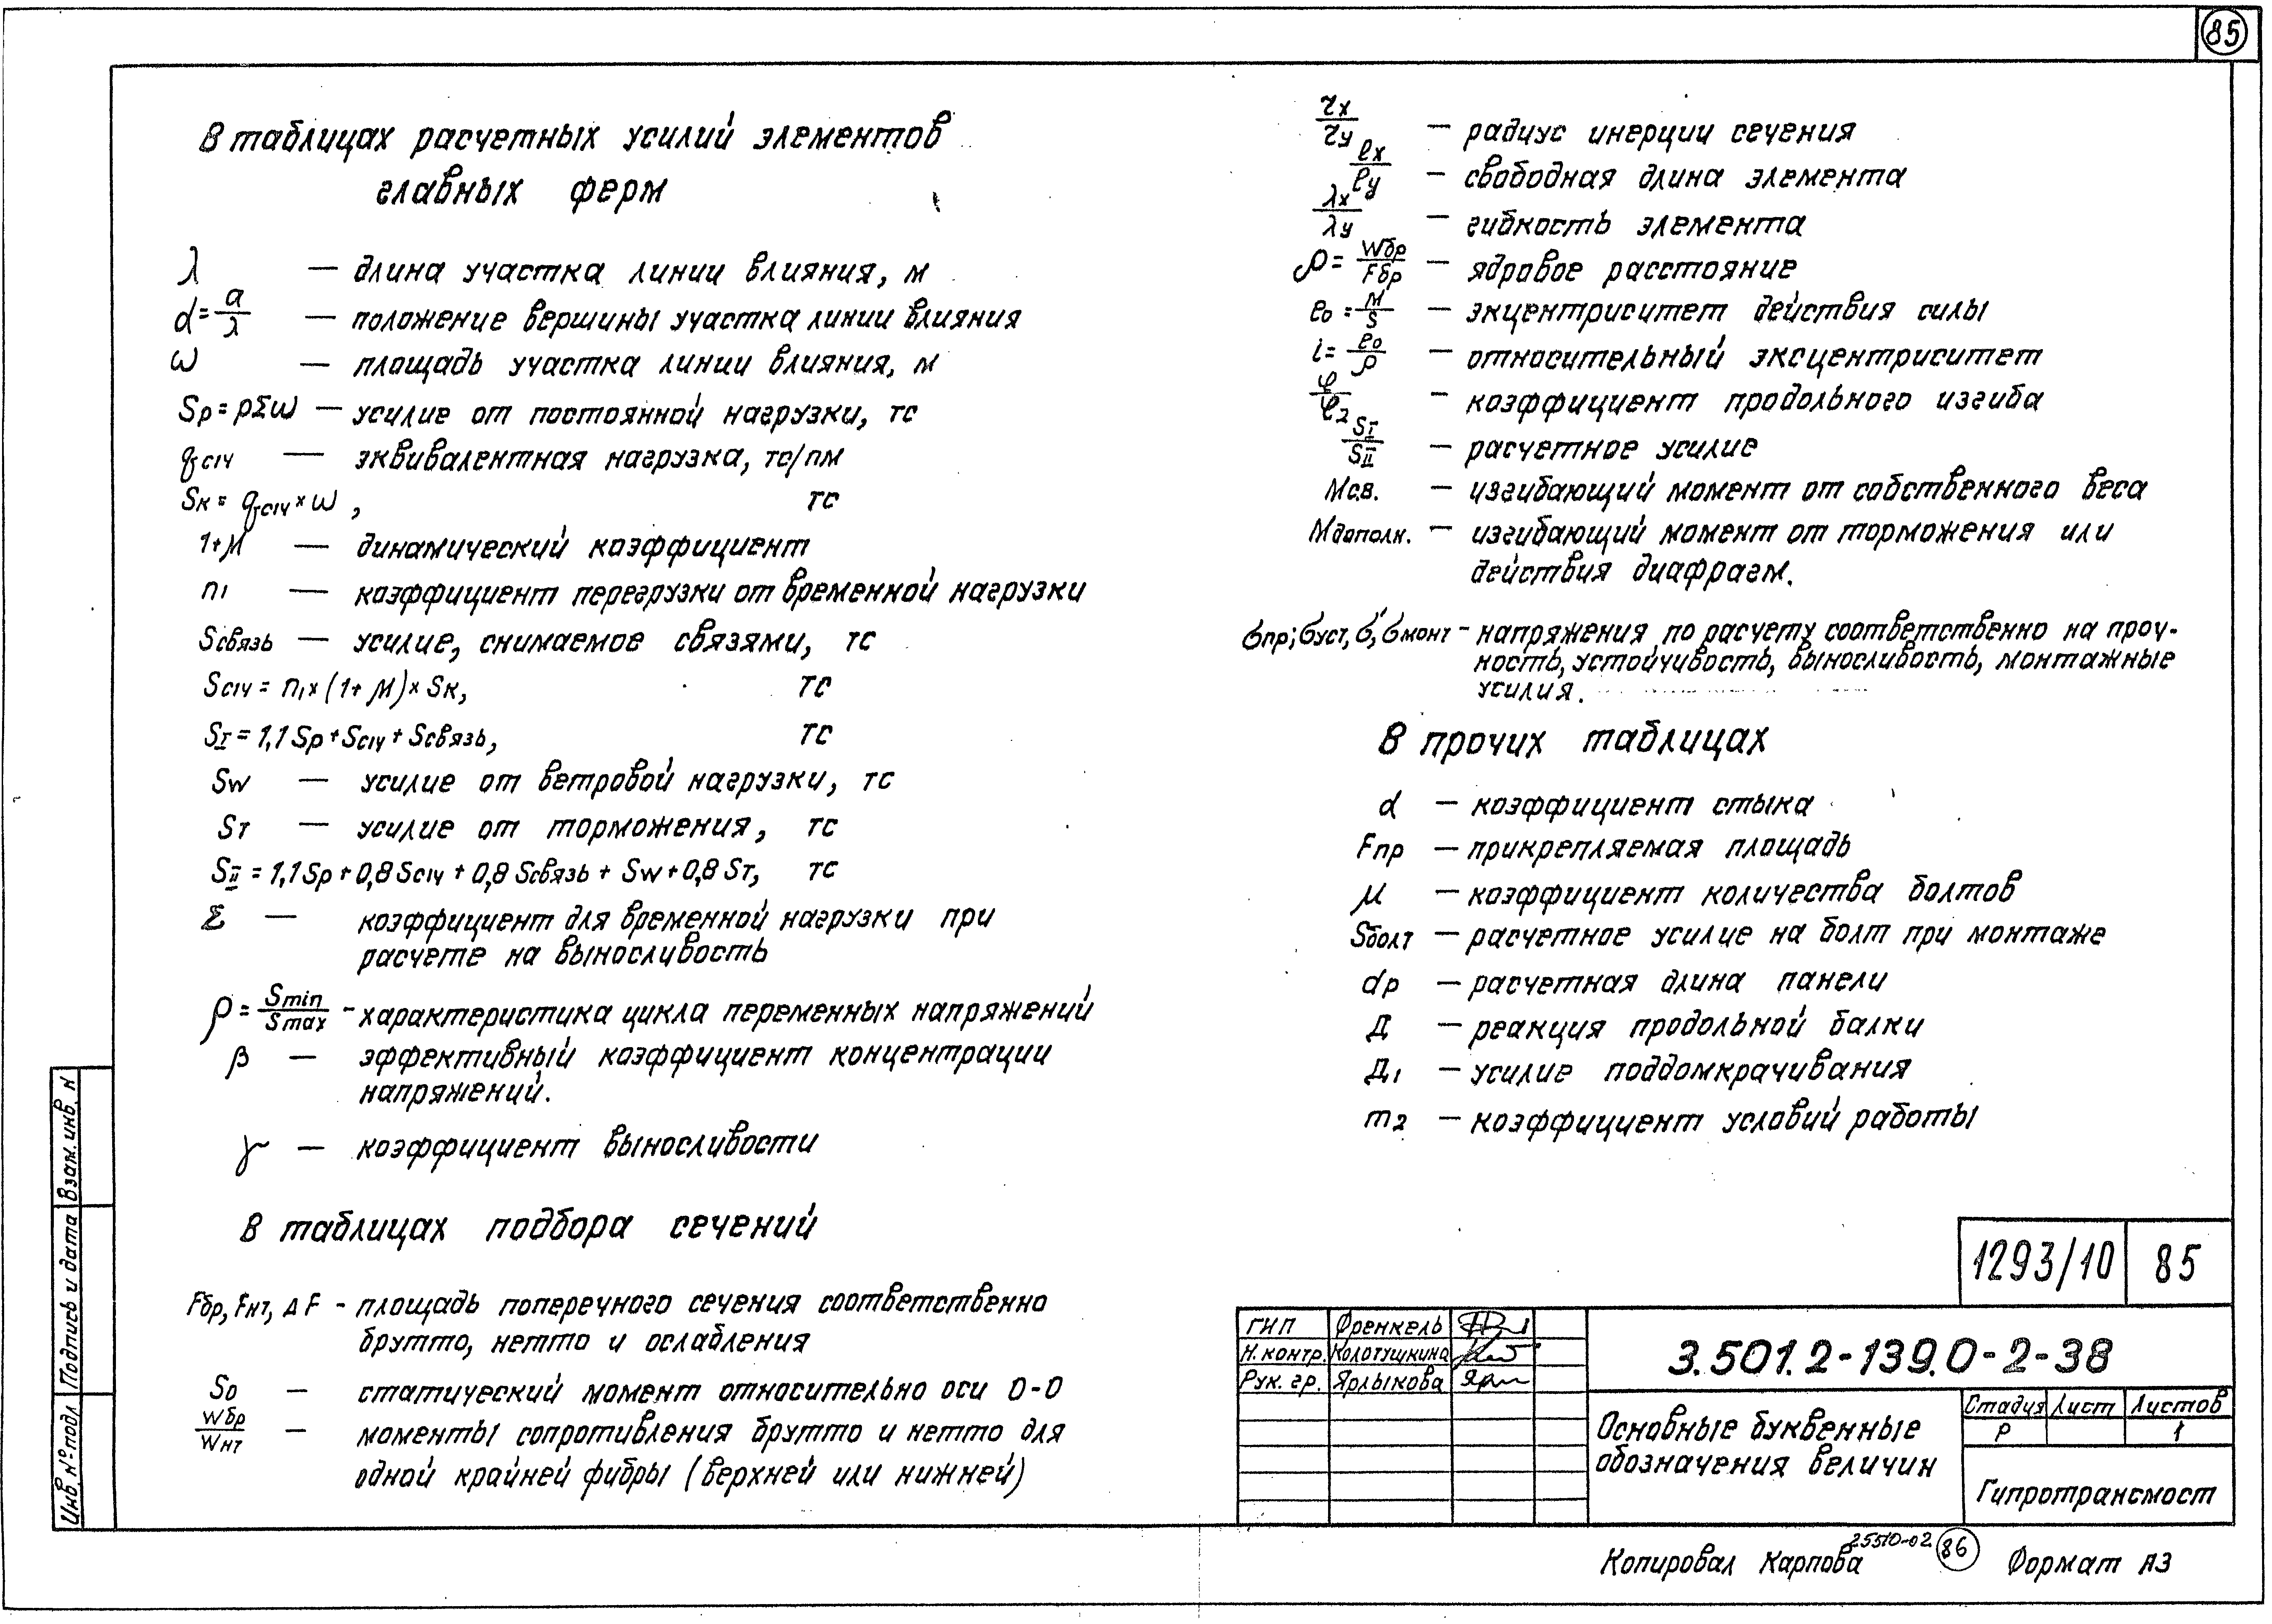 85
В таблицах расчетных усилий элементов
главных ферм
λ — длина участка линии влияния, м
α = a/λ — положение вершины участка линии влияния
ω — площадь участка линии влияния, м
Sp = pΣω — усилие от постоянной нагрузки, тс
qс14 — эквивалентная нагрузка, тс/пм
Sк = qс14 × ω, тс
1+μ — динамический коэффициент
n1 — коэффициент перегрузки от временной нагрузки
Sсвязь — усилие, снимаемое связями, тс
Sс14 = n1 × (1+μ) × Sк, тс
SI = 1,1 Sp + Sс14 + Sсвязь, тс
Sw — усилие от ветровой нагрузки, тс
Sт — усилие от торможения, тс
SII = 1,1 Sp + 0,8 Sс14 + 0,8 Sсвязь + Sw + 0,8 Sт, тс
Σ — коэффициент для временной нагрузки при
расчете на выносливость
ρ = Smin/Smax - характеристика цикла переменных напряжений
β — эффективный коэффициент концентрации
напряжений.
γ — коэффициент выносливости
В таблицах подбора сечений
Fбр, Fнт, ΔF - площадь поперечного сечения соответственно
брутто, нетто и ослабления
So — статический момент относительно оси 0-0
Wбр/Wнт — моменты сопротивления брутто и нетто для
одной крайней фибры (верхней или нижней)
τx/τy — радиус инерции сечения
ℓx/ℓy — свободная длина элемента
λx/λy — гибкость элемента
ρ = Wбр/Fбр — ядровое расстояние
e0 = M/S — экцентриситет действия силы
i = e0/ρ — относительный эксцентриситет
φ/φ2 — коэффициент продольного изгиба
SI/SII — расчетное усилие
Mс.в. — изгибающий момент от собственного веса
Mдополн. — изгибающий момент от торможения или
действия диафрагм.
σпр; σуст, σ', σмонт - напряжения по расчету соответственно на проч-
ность, устойчивость, выносливость, монтажные
усилия.
В прочих таблицах
α — коэффициент стыка
Fпр — прикрепляемая площадь
μ — коэффициент количества болтов
Sболт — расчетное усилие на болт при монтаже
dp — расчетная длина панели
Д — реакция продольной балки
Д1 — усилие поддомкрачивания
m2 — коэффициент условий работы
1293/10 85
ГИП Френкель
Н. контр. Колотушкина
Рук. гр. Ярлыкова
3.501.2-139.0-2-38
Основные буквенные
обозначения величин
Стадия Лист Листов
Р 1
Гипротрансмост
Инв № подл Подпись и дата Взам. инв. N
Копировал Карпова 25510-02 86 Формат А3